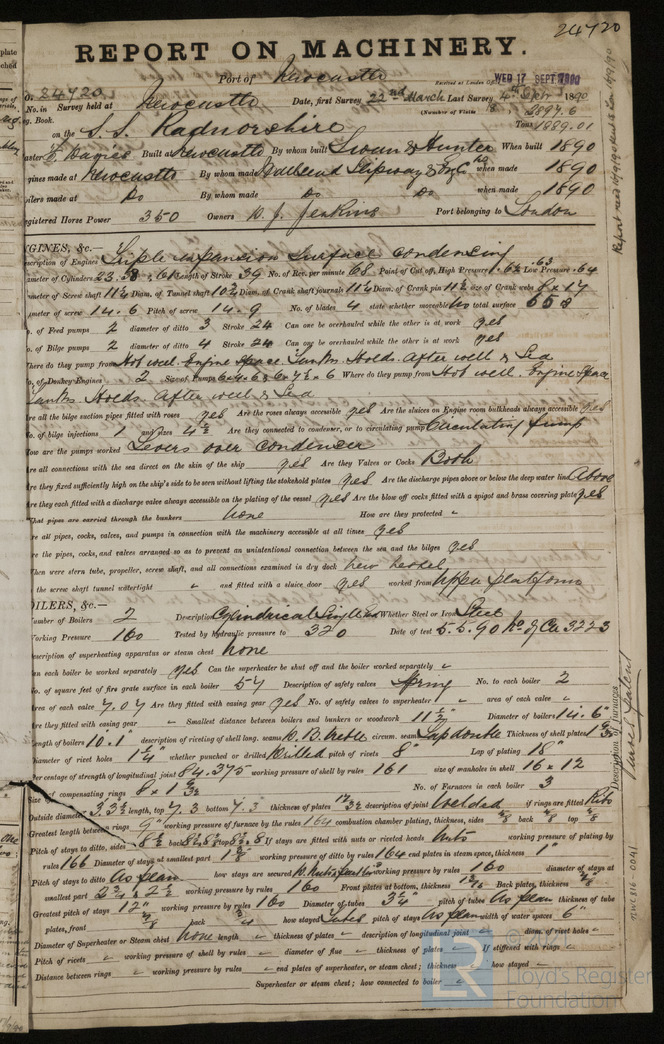 24720
REPORT ON MACHINERY.
Port of Newcastle
Received at London Office WED 17 SEPT 1890
No. 24720
No. in Survey held at Newcastle Date, first Survey 22nd March Last Survey 4th Sept 1890
Reg. Book. (Number of Visits
on the S.S. Radnorshire Tons 2897.6
1889.01
Master Davies Built at Newcastle By whom built Swan & Hunter When built 1890
Engines made at Newcastle By whom made Wallsend Slipway & Eng Co when made 1890
Boilers made at Do By whom made Do Do when made 1890
Registered Horse Power 350 Owners D. J. Jenkins Port belonging to London
ENGINES, &c.—
Description of Engines Triple expansion Surface condensing
Diameter of Cylinders 23.38 & 61 Length of Stroke 39 No. of Rev. per minute 68 Point of Cut off, High Pressure .62 Low Pressure .64
Diameter of Screw shaft 11¼ Diam. of Tunnel shaft 10¾ Diam. of Crank shaft journals 11¼ Diam. of Crank pin 11½ size of Crank webs 8 x 17
Diameter of screw 14.6 Pitch of screw 14.9 No. of blades 4 state whether moveable No total surface 658
No. of Feed pumps 2 diameter of ditto 3 Stroke 24 Can one be overhauled while the other is at work yes
No. of Bilge pumps 2 diameter of ditto 4 Stroke 24 Can one be overhauled while the other is at work yes
Where do they pump from Hot well. Engine Space. Tanks. Holds. After well & Sea
No. of Donkey Engines 2 Size of Pumps 6x4x6 & 6x7½x6 Where do they pump from Hot well. Engine Space
Tanks Holds After well & Sea
Are all the bilge suction pipes fitted with roses yes Are the roses always accessible yes Are the sluices on Engine room bulkheads always accessible yes
No. of bilge injections 1 and sizes 4½ Are they connected to condenser, or to circulating pump Circulating pump
How are the pumps worked Levers over condenser
Are all connections with the sea direct on the skin of the ship yes Are they Valves or Cocks Both
Are they fixed sufficiently high on the ship's side to be seen without lifting the stokehold plates yes Are the discharge pipes above or below the deep water line Above
Are they each fitted with a discharge valve always accessible on the plating of the vessel yes Are the blow off cocks fitted with a spigot and brass covering plate yes
What pipes are carried through the bunkers none How are they protected "
Are all pipes, cocks, valves, and pumps in connection with the machinery accessible at all times yes
Are the pipes, cocks, and valves arranged so as to prevent an unintentional connection between the sea and the bilges yes
When were stern tube, propeller, screw shaft, and all connections examined in dry dock new vessel
Is the screw shaft tunnel watertight " and fitted with a sluice door yes worked from Upper platform
BOILERS, &c.—
Number of Boilers 2 Description Cylindrical Single end Whether Steel or Iron Steel
Working Pressure 160 Tested by hydraulic pressure to 320 Date of test 5.5.90 No of Ce 3223
Description of superheating apparatus or steam chest none
Can each boiler be worked separately yes Can the superheater be shut off and the boiler worked separately "
No. of square feet of fire grate surface in each boiler 57 Description of safety valves Spring No. to each boiler 2
Area of each valve 7.07 Are they fitted with easing gear yes No. of safety valves to superheater " area of each valve "
Are they fitted with easing gear " Smallest distance between boilers and bunkers or woodwork 11½" Diameter of boilers 14.6"
Length of boilers 10.1" description of riveting of shell long. seams D.B. treble circum. seams Lap double Thickness of shell plates
Diameter of rivet holes 1¼" whether punched or drilled Drilled pitch of rivets 8" Lap of plating 18"
Percentage of strength of longitudinal joint 84.375 working pressure of shell by rules 161 size of manholes in shell 16 x 12
Size of compensating rings No. of Furnaces in each boiler 3
Outside diameter 3.3½ length, top 7.3 bottom 7.3 thickness of plates 17/32 description of joint Welded if rings are fitted Ribs
Greatest length between rings 9" working pressure of furnace by the rules 164 combustion chamber plating, thickness, sides back top
Pitch of stays to ditto, sides back top If stays are fitted with nuts or riveted heads Nuts working pressure of plating by
rules 166 Diameter of stays at smallest part working pressure of ditto by rules 164 end plates in steam space, thickness 1"
Pitch of stays to ditto As plan how stays are secured working pressure by rules 160 diameter of stays at
smallest part 2¾ & 2½ working pressure by rules 160 Front plates at bottom, thickness Back plates, thickness
Greatest pitch of stays 12" working pressure by rules 160 Diameter of tubes 3¼" pitch of tubes As plan thickness of tube
plates, front back how stayed Tubes pitch of stays As plan width of water spaces 6"
Diameter of Superheater or Steam chest none length " thickness of plates " description of longitudinal joint " diam. of rivet holes "
Pitch of rivets " working pressure of shell by rules " diameter of flue " thickness of plates " If stiffened with rings "
Distance between rings " working pressure by rules " end plates of superheater, or steam chest; thickness " how stayed "
Superheater or steam chest; how connected to boiler "
Description of Furnaces
Purves Patent
Lloyd's Register
Foundation